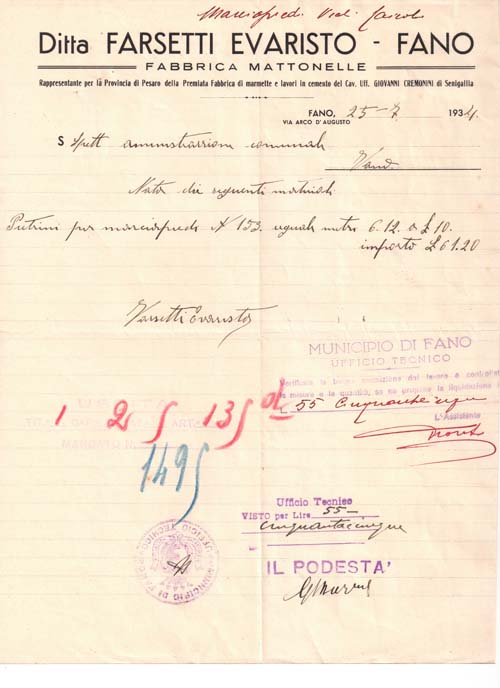 Ditta FARSETTI EVARISTO - FANO
FABBRICA MATTONELLE
Rappresentante per la Provincia di Pesaro della Premiata Fabbrica di marmette e lavori in cemento del Cav. Uff. GIOVANNI CREMONINI di Senigallia
FANO, 25-7 1934
VIA ARCO D'AUGUSTO
S Spett amministrazione comunale
Fano
Nota dei seguenti materiali
Pietrini per marciapiede N 153 uguale metri 6.12 a £ 10.
importo £ 61.20
Farsetti Evaristo
MUNICIPIO DI FANO
UFFICIO TECNICO
la misura e la quantità, se ne propone la liquidazione
55 cinquantacinque
L'Assistente
1495
Ufficio Tecnico
VISTO per Lire 55-
cinquantacinque
IL PODESTA'